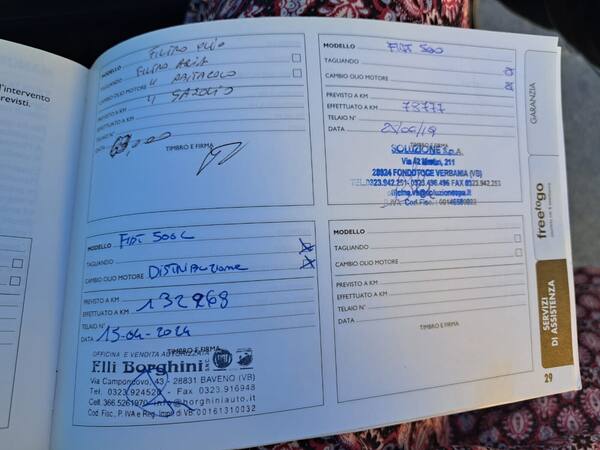 l'intervento
previsti.
FILTRO OLIO
MODELLO FILTRO ARIA
TAGLIANDO " ABITACOLO
CAMBIO OLIO MOTORE " GASOLIO
PREVISTO A KM
EFFETTUATO A KM
TELAIO N°
DATA
TIMBRO E FIRMA
MODELLO FIAT 500
TAGLIANDO
CAMBIO OLIO MOTORE
PREVISTO A KM
EFFETTUATO A KM 73777
TELAIO N°
DATA 25/06/19
TIMBRO E FIRMA
SOLUZIONE S.p.A.
211
28924 FONDOTOCE VERBANIA (VB)
TEL.0323.942.251- 0323.496.496 FAX 0323.942.253
P.IVA Cod. Fisc.:
MODELLO FIAT 500L
TAGLIANDO
CAMBIO OLIO MOTORE DISTRIBUZIONE
PREVISTO A KM
EFFETTUATO A KM 132268
TELAIO N°
DATA 15-04-2024
TIMBRO E FIRMA
OFFICINA E VENDITA AUTORIZZATA
F.lli Borghini S.N.C.
Via Campondovo, 43 - 28831 BAVENO (VB)
Tel. 0323.924522 - Fax 0323.916948
Cell. 366.5261970 info@borghiniauto.it
Cod. Fisc., P. IVA e Reg. Impr. di VB 00161310032
MODELLO
TAGLIANDO
CAMBIO OLIO MOTORE
PREVISTO A KM
EFFETTUATO A KM
TELAIO N°
DATA
TIMBRO E FIRMA
GARANZIA
freetogo
SERVIZI
DI ASSISTENZA
29